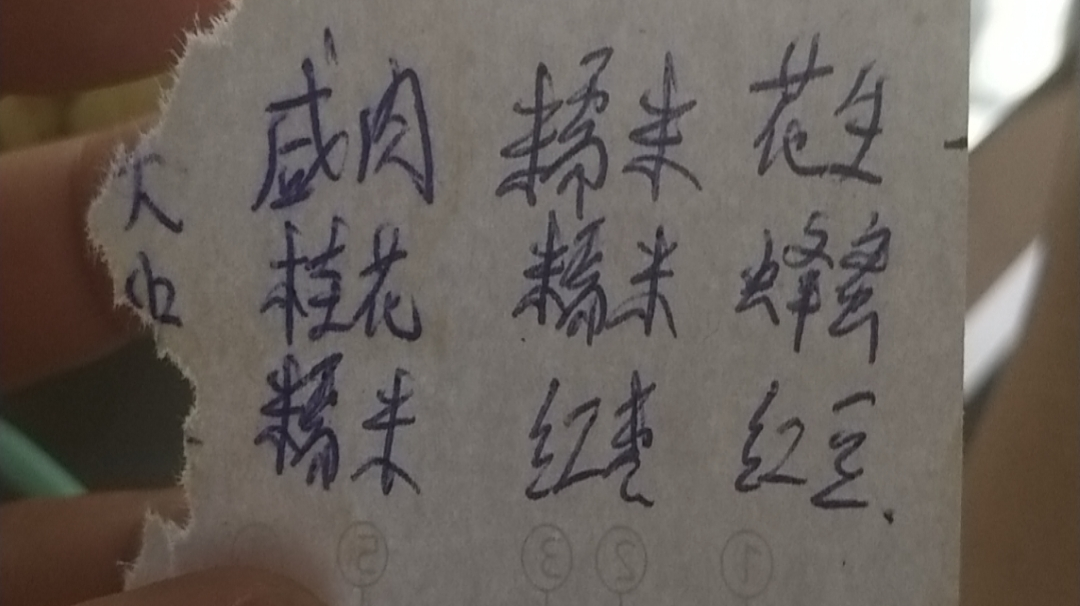 咸肉 糯米 花生
桂花 糯米 蜂蜜
糯米 红枣 红豆.
⑤ ③ ② ①